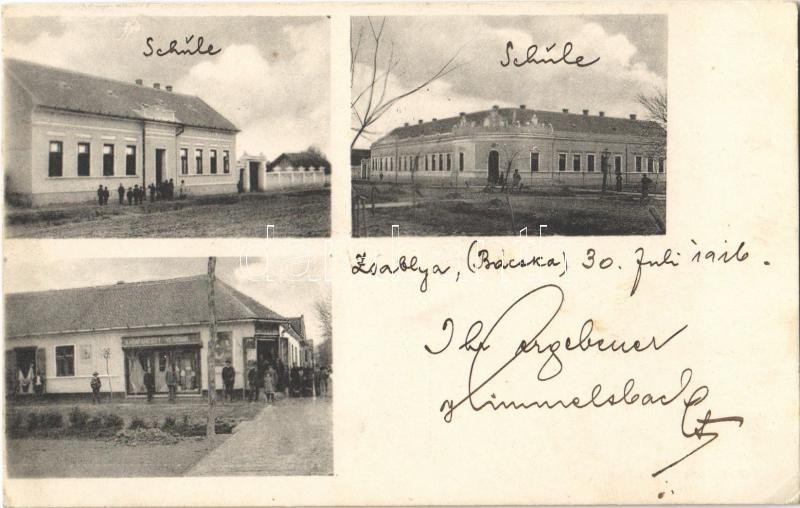 Schŭle
Schŭle
Zsablya, (Bácska) 30. Juli 1916.
Ihr ergebener
Himmelsbach